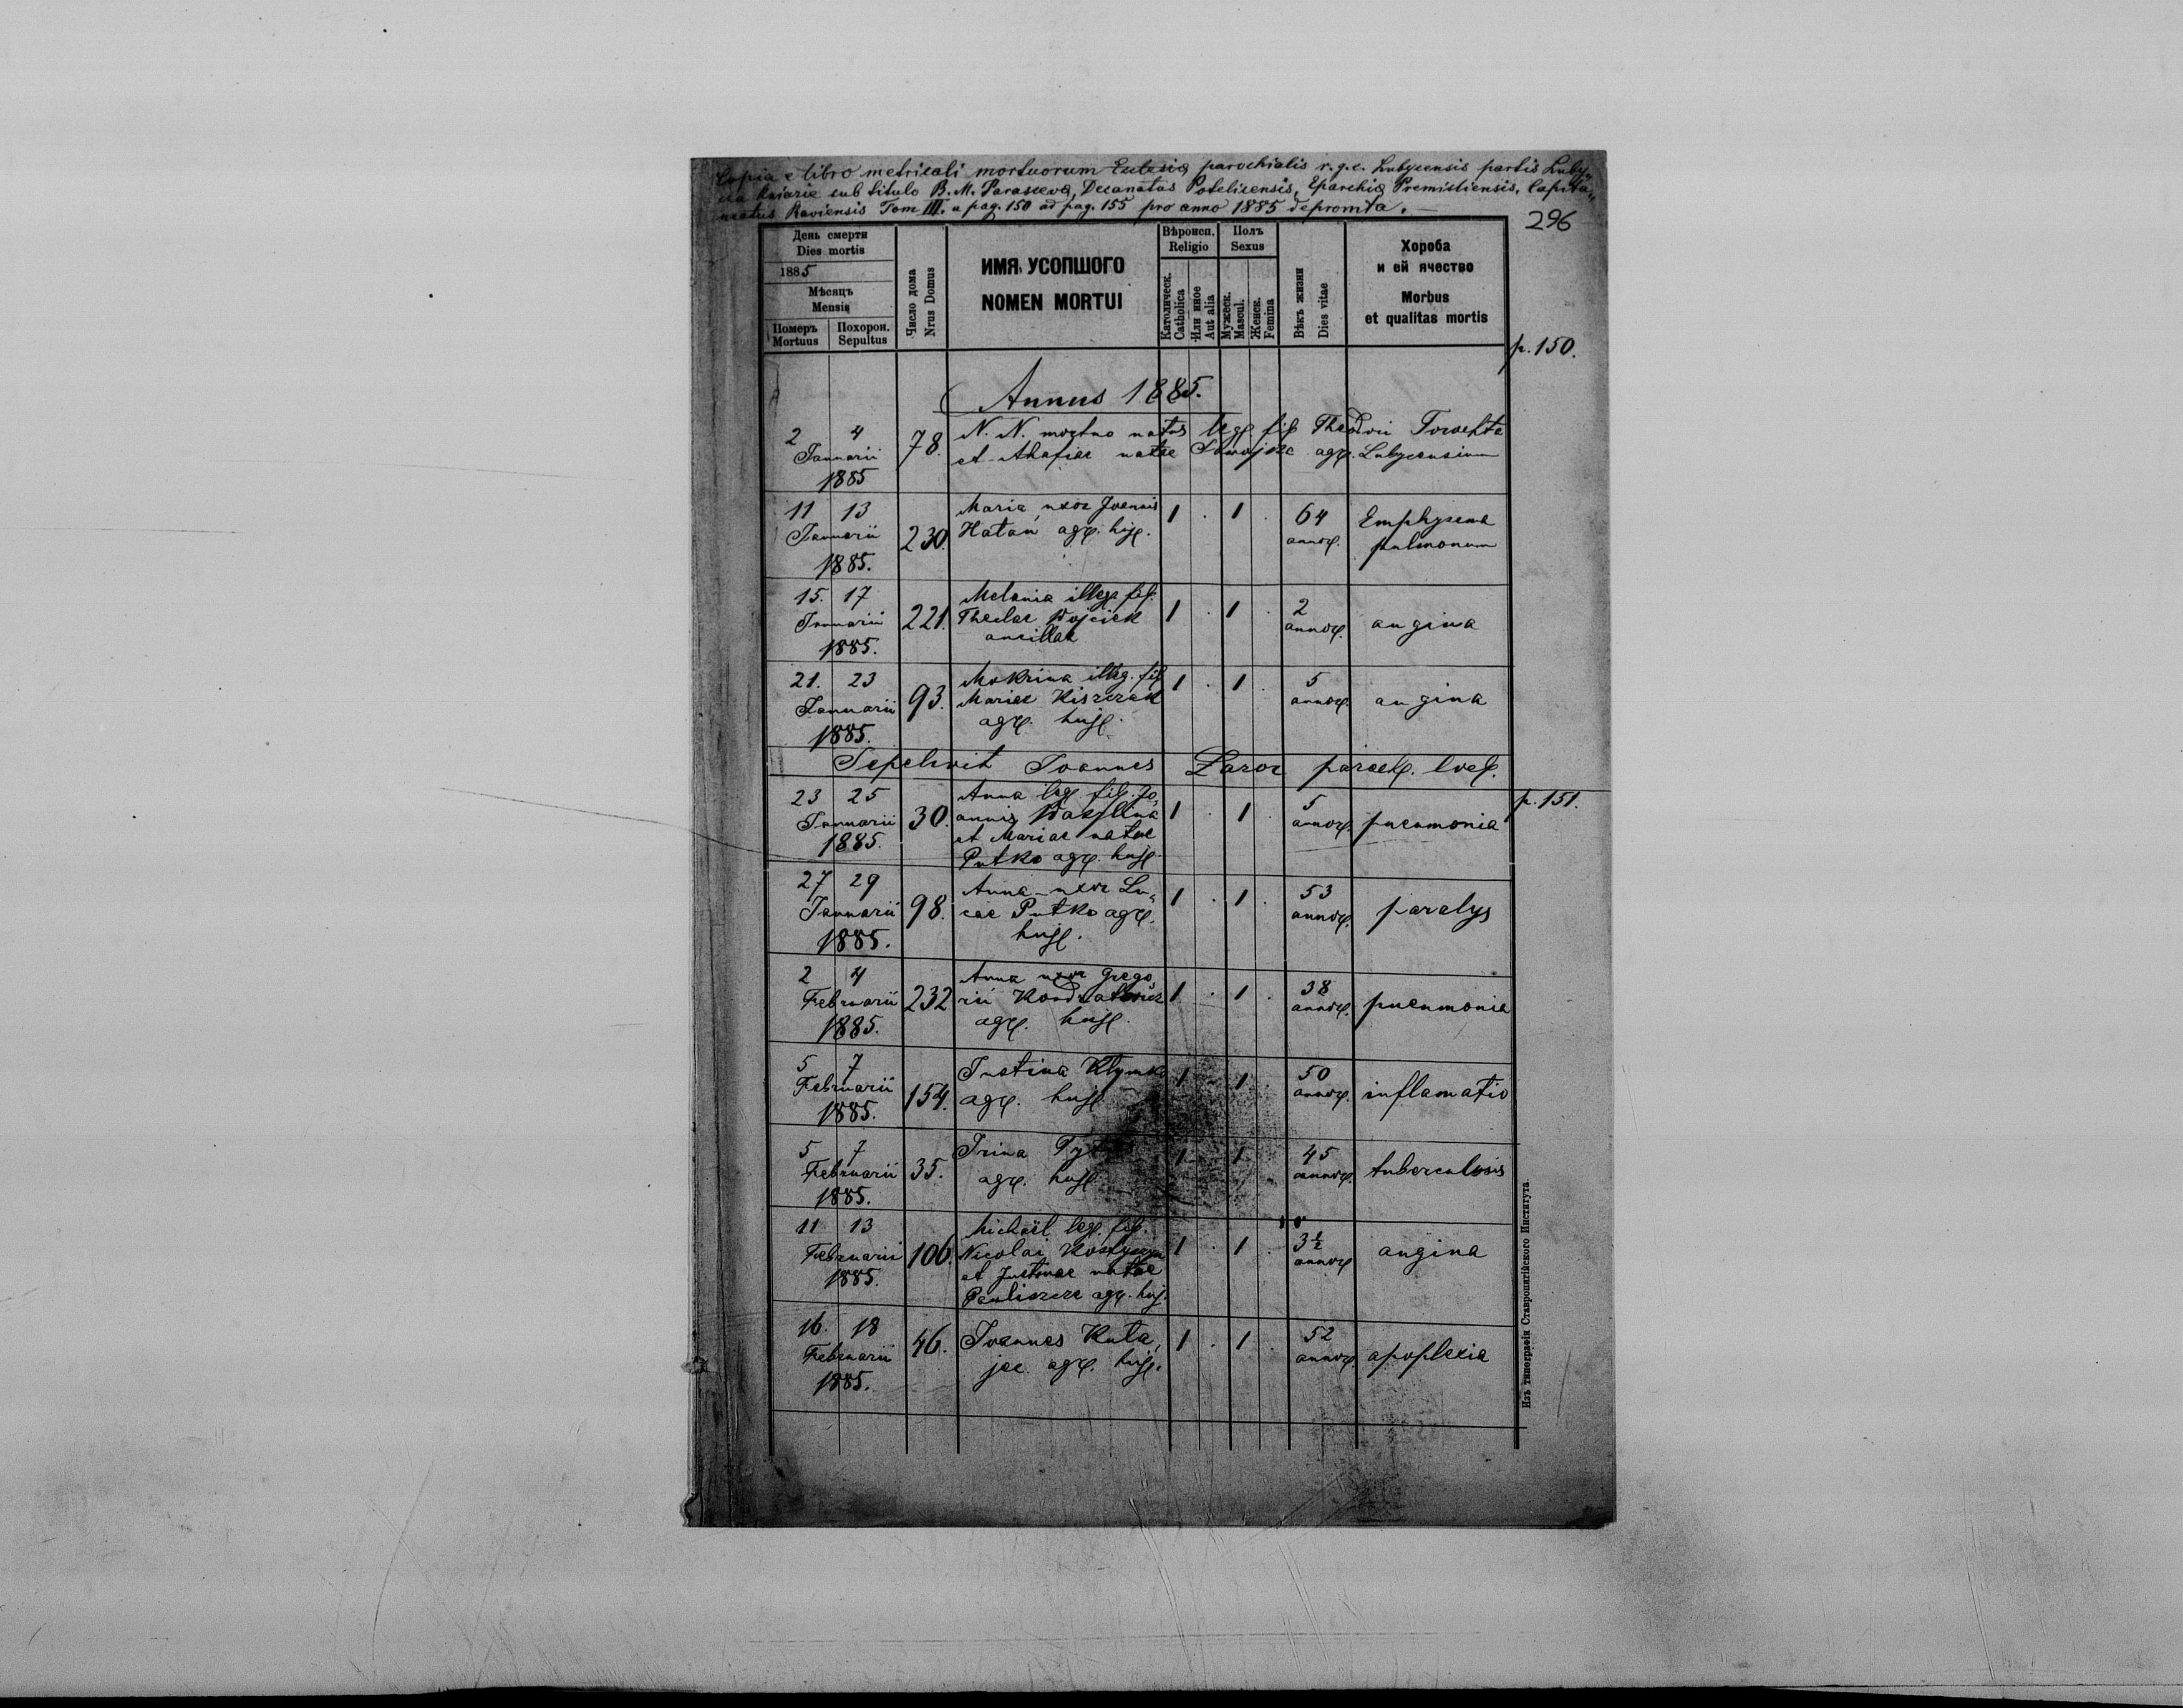 Copia e libro metricali mortuorum Eclesiæ parochialis r.g.c. Lubycensis partis Luby-
cza Kniazie sub titulo B. M. Parascevæ, Decanatus Potelicensis, Eparchiæ Premisliensis, Capita-
neatus Raviensis Tom III. a pag. 150 ad pag. 155 pro anno 1885 depromta.
296
День смерти
Dies mortis
1885
Мѣсяцъ
Mensis
Померъ
Mortuus
Похорон.
Sepultus
Число дома
Nrus Domus
ИМЯ УСОПШОГО
NOMEN MORTUI
Вѣроисп.
Religio
Католическ.
Catholica
Или иное
Aut alia
Полъ
Sexus
Мужеск.
Mascul.
Женск.
Femina
Вѣкъ жизни
Dies vitae
Хороба
и ей ячество
Morbus
et qualitas mortis
p. 150.
Annus 1885.
2 4 78. N. N. mortuo natus leg. fil. Theodori
Januarii et natae agr. Lubycensium
1885
11 13 Maria, uxor Joannis 1 . 1 . 64 Emphysema
Januarii 230. Hatan agr. huj. annor. pulmonum
1885.
15. 17 Melania illeg. fil.
Januarii 221. Theclae Wojcick 1 . 1 . 2 annor. angina
1885. ancillae
21. 23 Mokrina illeg. fil. 1 . 1 . 5
Januarii 93. Mariae Kiszczak annor. angina
1885. agr. huj.
Sepelivit Joannes paroch. loc.
p. 151.
23 25 Anna leg. fil. Jo-
Januarii 30. annis Wasylina 1 . 1 . 5 annor. pneumonia
1885. et Mariae natae
Putko agr. huj.
27 29 Anna uxor Lu- 1 . 1 . 53
Januarii 98. cae Putko agr. annor. paralys
1885. huj.
2 4 Anna uxor Grego- 38
Februarii 232 rii Kondratowicz 1 . 1 . annor. pneumonia
1885. agr. huj.
5 7 Justina Klymko 1 . 1 . 50
Februarii 154. agr. huj. annor. inflamatio
1885.
5 7 Irina 1 . 1 45
Februarii 35. agr. huj. annor. tuberculosis
1885.
11 13 Michaël leg. fil.
Februarii 106. Nicolai 1 . 1 . 3½ annor. angina
1885. et Justinae natae
agr. huj.
16. 18 46. Joannes Kuta- 1 . 1 . 52
Februarii jac agr. huj. annor. apoplexia
1885.
Изъ типографіи Ставропигійского Института.